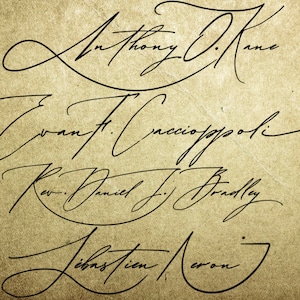 Anthony O. Kane
Evan F. Caccioppoli
Rev. Daniel J. Bradley
Sébastien Neron